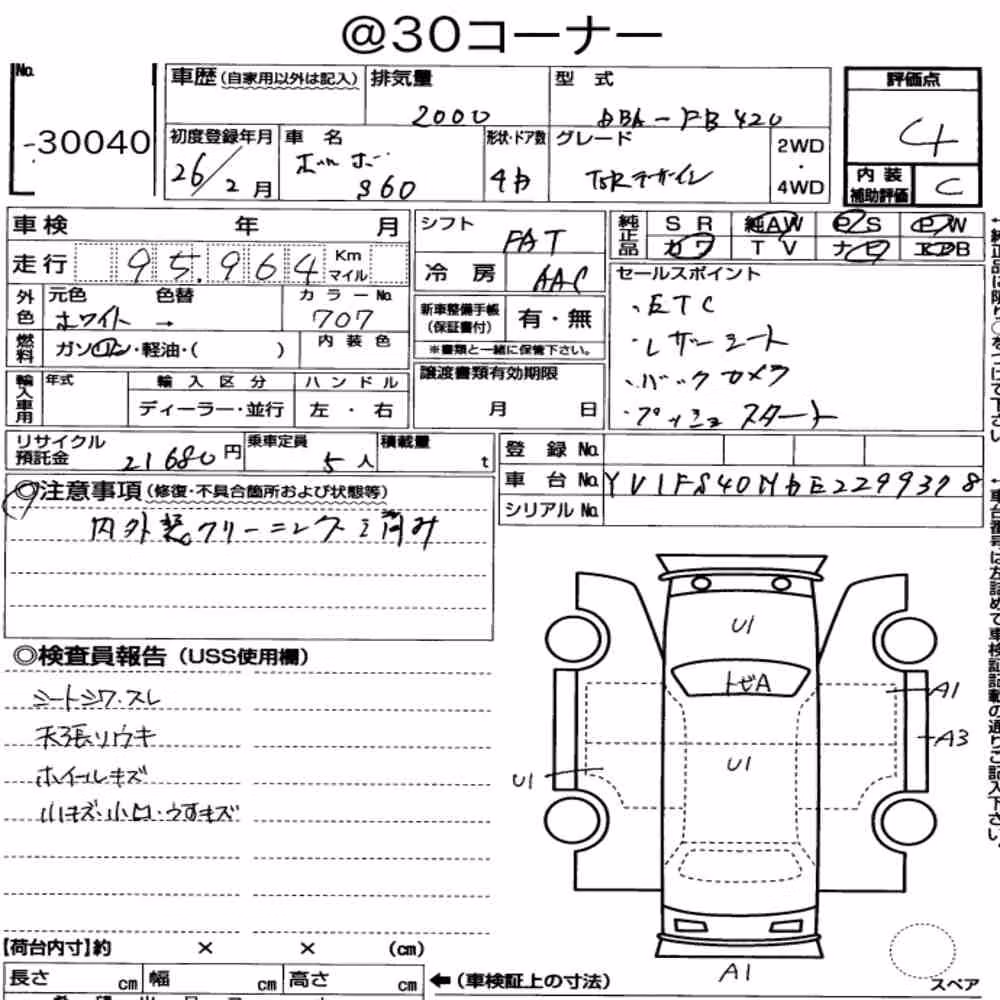 @30コーナー
No. -30040
車歴(自家用以外は記入) 排気量 2000 型式 DBA-FB420 評価点 4
初度登録年月 26/2月 車名 ボルボ S60 形状・ドア数 4D グレード 2WD・4WD 内装補助評価 C
車検 年 月
走行 95,964 Km マイル
外色 元色 ホワイト 色替 → カラーNo. 707
燃料 ガソリン・軽油・( ) 内装色
輸入車用 年式 輸入区分 ディーラー・並行 ハンドル 左・右
シフト FAT
冷房 AAC
新車整備手帳(保証書付) 有・無
※書類と一緒に保管下さい。
譲渡書類有効期限 月 日
純正品 SR 純AW PS PW
カワ TV ナビ
セールスポイント
・ETC
・レザーシート
・バックカメラ
・プッシュスタート
リサイクル預託金 21680円 乗車定員 5人 積載量 t
登録No.
車台No. YV1FS40MDE2299378
シリアルNo.
◎注意事項(修復・不具合箇所および状態等)
内外装クリーニング済み
◎検査員報告(USS使用欄)
シートシワ・スレ
天張リウキ
ホイールキズ
小キズ・小凹・うすキズ
U1
トビA
A1
A3
U1
U1
A1
【荷台内寸】約 × × (cm)
長さ cm 幅 cm 高さ cm
←(車検証上の寸法)
スペア